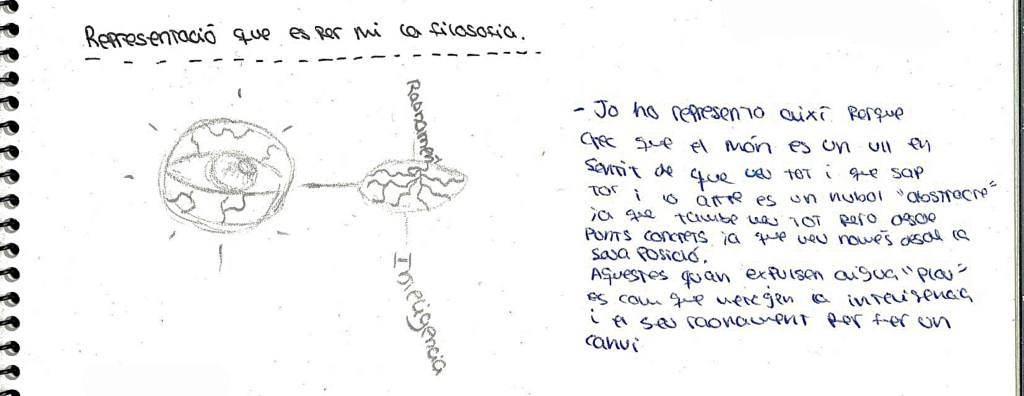 Representació que es per mi la filosofia.
Raonament
Intel·ligencia
- Jo ho represento així perque
crec que el món es un ull en
sentit de que veu tot i que sap
tot i a arre es un nubol "abstracte"
ja que tambe veu tot pero desde
punts concrets ja que veu només desde la
seva posició.
Aquestes quan expulsen aigua "plou"
es com que neteјen la inteligencia
i el seu raonament per fer un
canvi